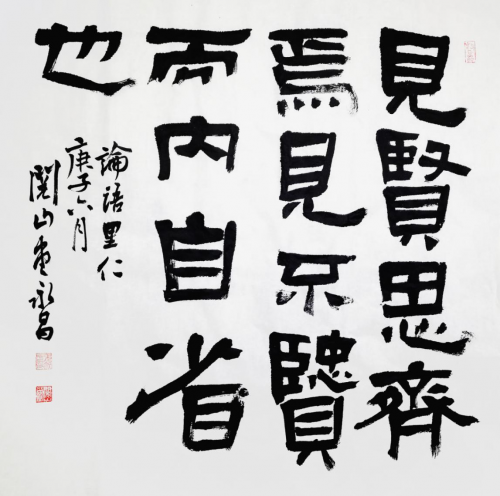 見賢思齊
焉見不賢
而內自省
也
論語里仁
庚子六月
山永昌